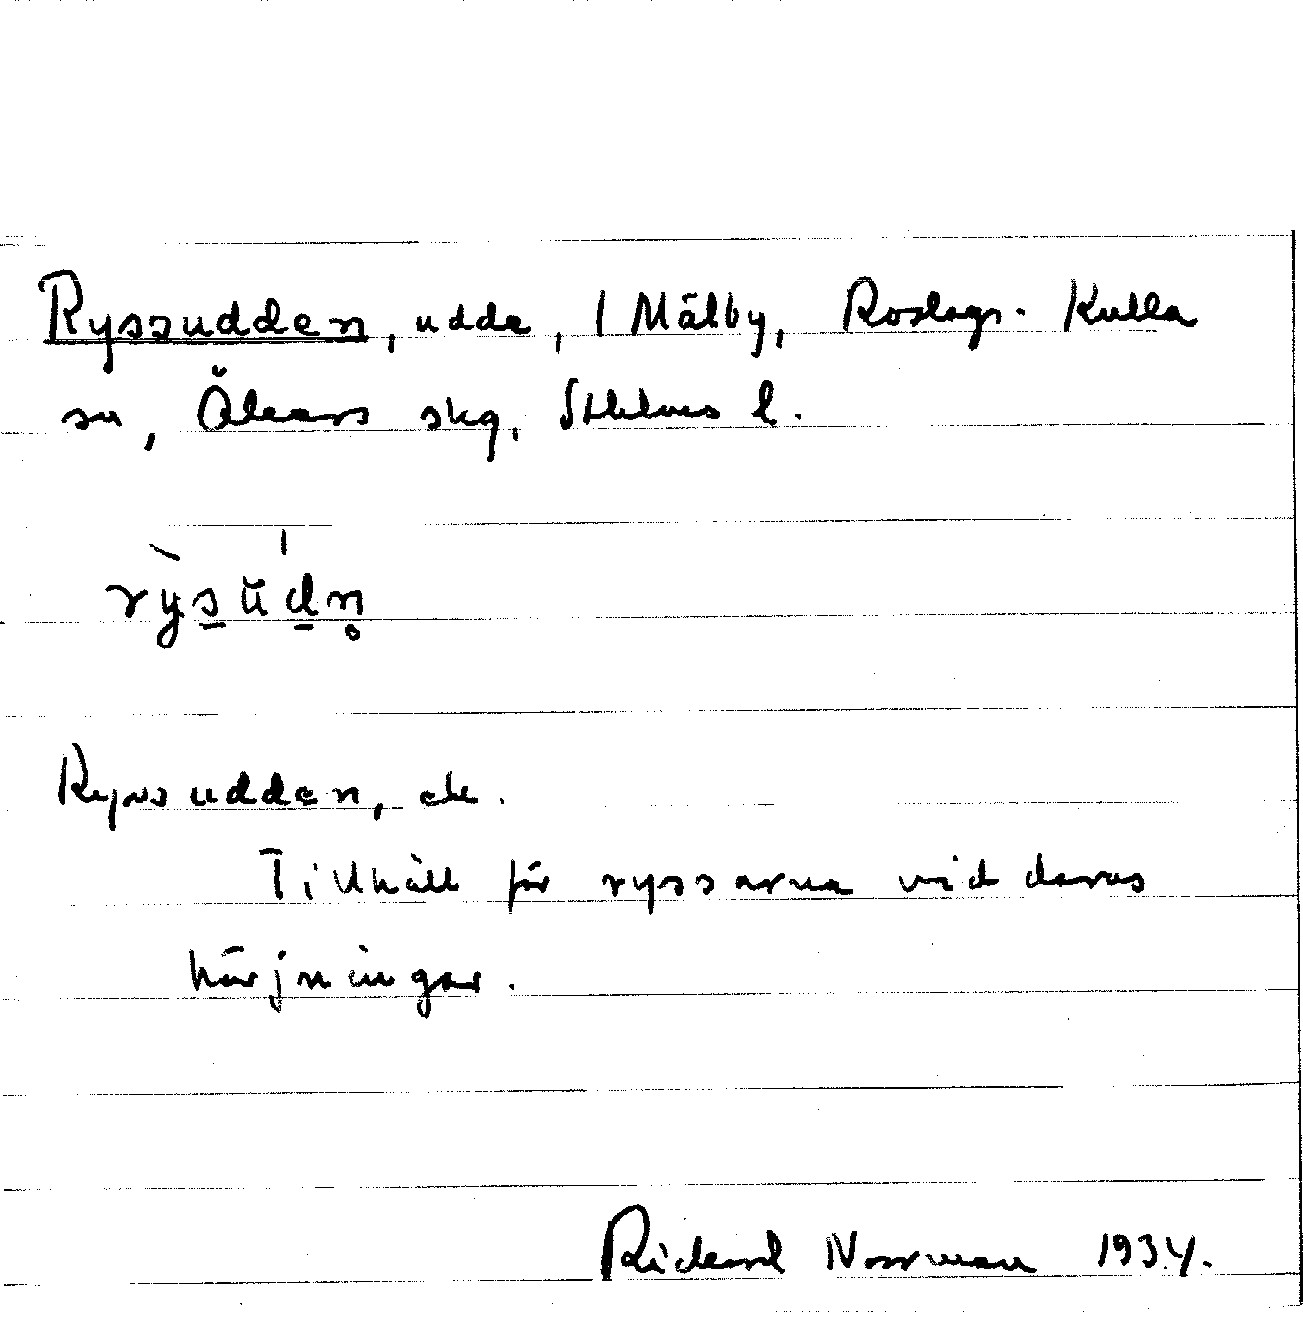 Ryssudden, udde, 1 Mälby, Roslags-Kulla
sn, Åkers skg, Sthlms l.
rỳsŭdn̥
Ryssudden, ele.
Tillhåll för ryssarna vid deras
härjningar.
Rickard Norrman 1934.